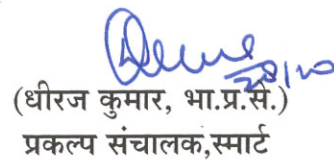 28/10
(धीरज कुमार, भा.प्र.से.)
प्रकल्प संचालक,स्मार्ट